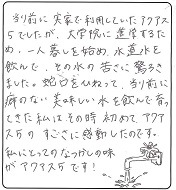 当前に実家で利用していたアクアス
5でしたが、大学院に進学するた
め、一人暮しを始め、水道水を
飲んで、その水の苦さに驚ろき
ました。蛇口をひねって、当り前に
癖のない美味しい水を飲んで育っ
てきた私はその時初めてアクア
ス5のすごさに感動したのです。
私にとってのなつかしの味
がアクアス5です!